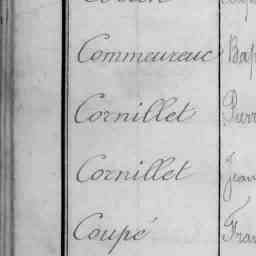 Commeureuc Bap
Cornillet Pierr
Cornillet Jean
Coupé Fran